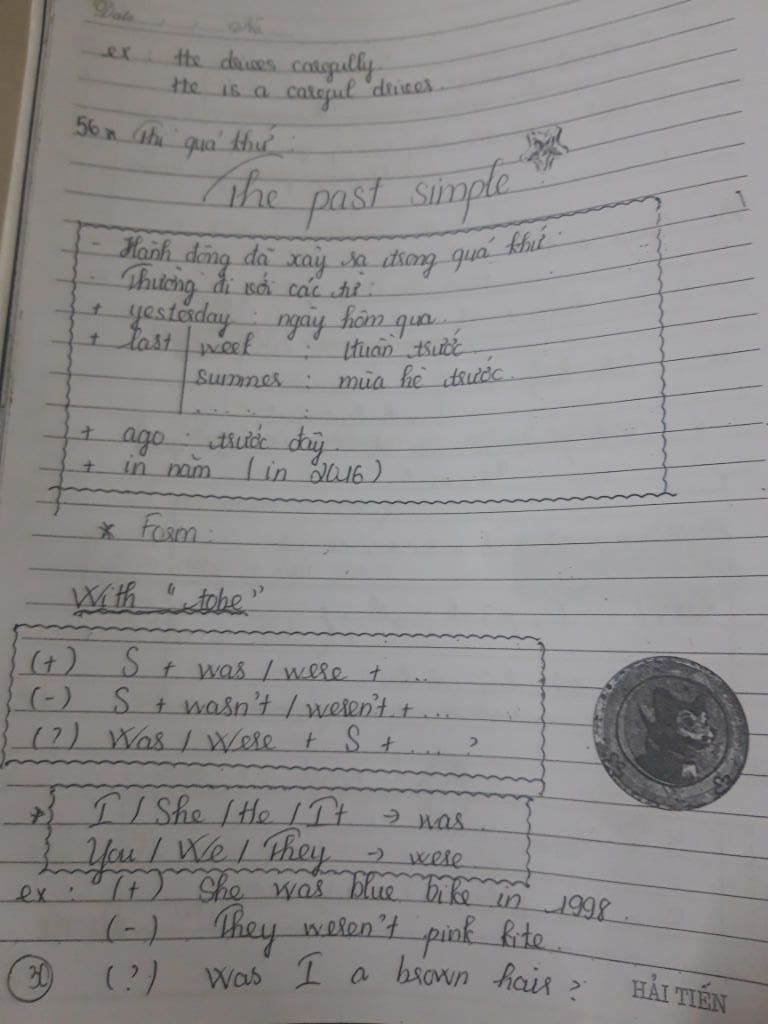 Date No
ex : He drives carefully
He is a careful driver.
56, Thì quá khứ :
The past simple
- Hành động đã xảy ra trong quá khứ.
. Thường đi với các từ:
+ yesterday : ngày hôm qua.
+ last week : tuần trước
summer : mùa hè trước.
..... :
+ ago : trước đây
+ in năm (in 2016)
* Form :
With "tobe"
(+) S + was / were + ...
(-) S + wasn't / weren't + ...
(?) Was / Were + S + .... ?
I / She / He / It → was
You / We / They → were
ex : (+) She was blue bike in 1998.
(-) They weren't pink kite.
(?) Was I a brown hair ?
HẢI TIẾN